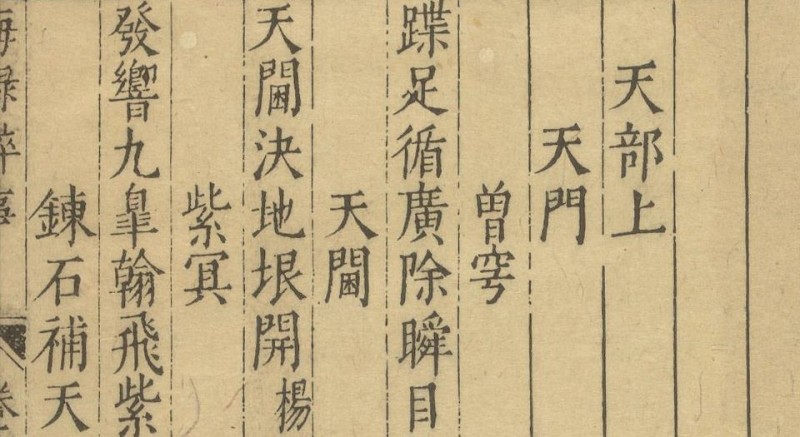 天部上
天門
曾穹
蹀足循廣除瞬目
天閫
天閫決地垠開楊
紫冥
發響九臯翰飛紫
鍊石補天
海録碎事